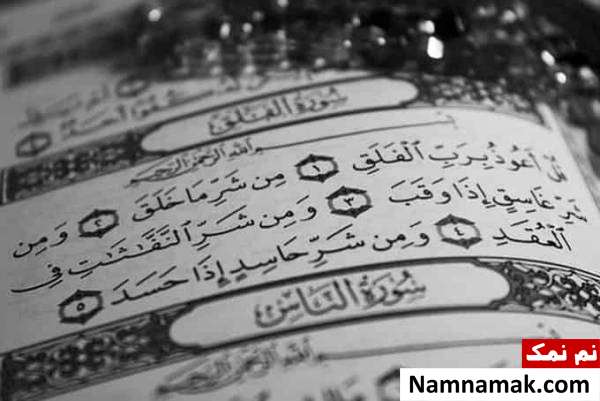 سُورَةُ الفَلَقِ
بِسْمِ اللَّهِ الرَّحْمَٰنِ الرَّحِيمِ
قُلْ أَعُوذُ بِرَبِّ الْفَلَقِ ١ مِن شَرِّ مَا خَلَقَ ٢ وَمِن
شَرِّ غَاسِقٍ إِذَا وَقَبَ ٣ وَمِن شَرِّ النَّفَّاثَاتِ فِي
الْعُقَدِ ٤ وَمِن شَرِّ حَاسِدٍ إِذَا حَسَدَ ٥
سُورَةُ النَّاسِ
بِسْمِ اللَّهِ الرَّحْمَٰنِ الرَّحِيمِ
نم نمک
Namnamak.com